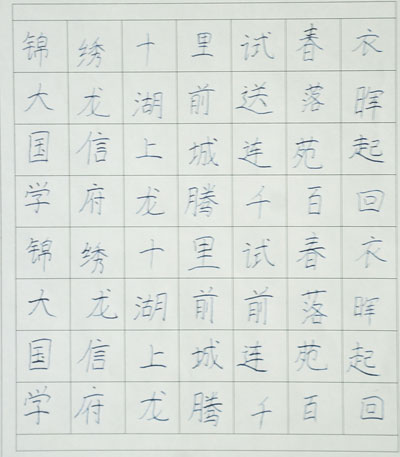 锦绣十里试春衣
大龙湖前送落晖
国信上城连苑起
学府龙腾千百回
锦绣十里试春衣
大龙湖前前落晖
国信上城连苑起
学府龙腾千百回